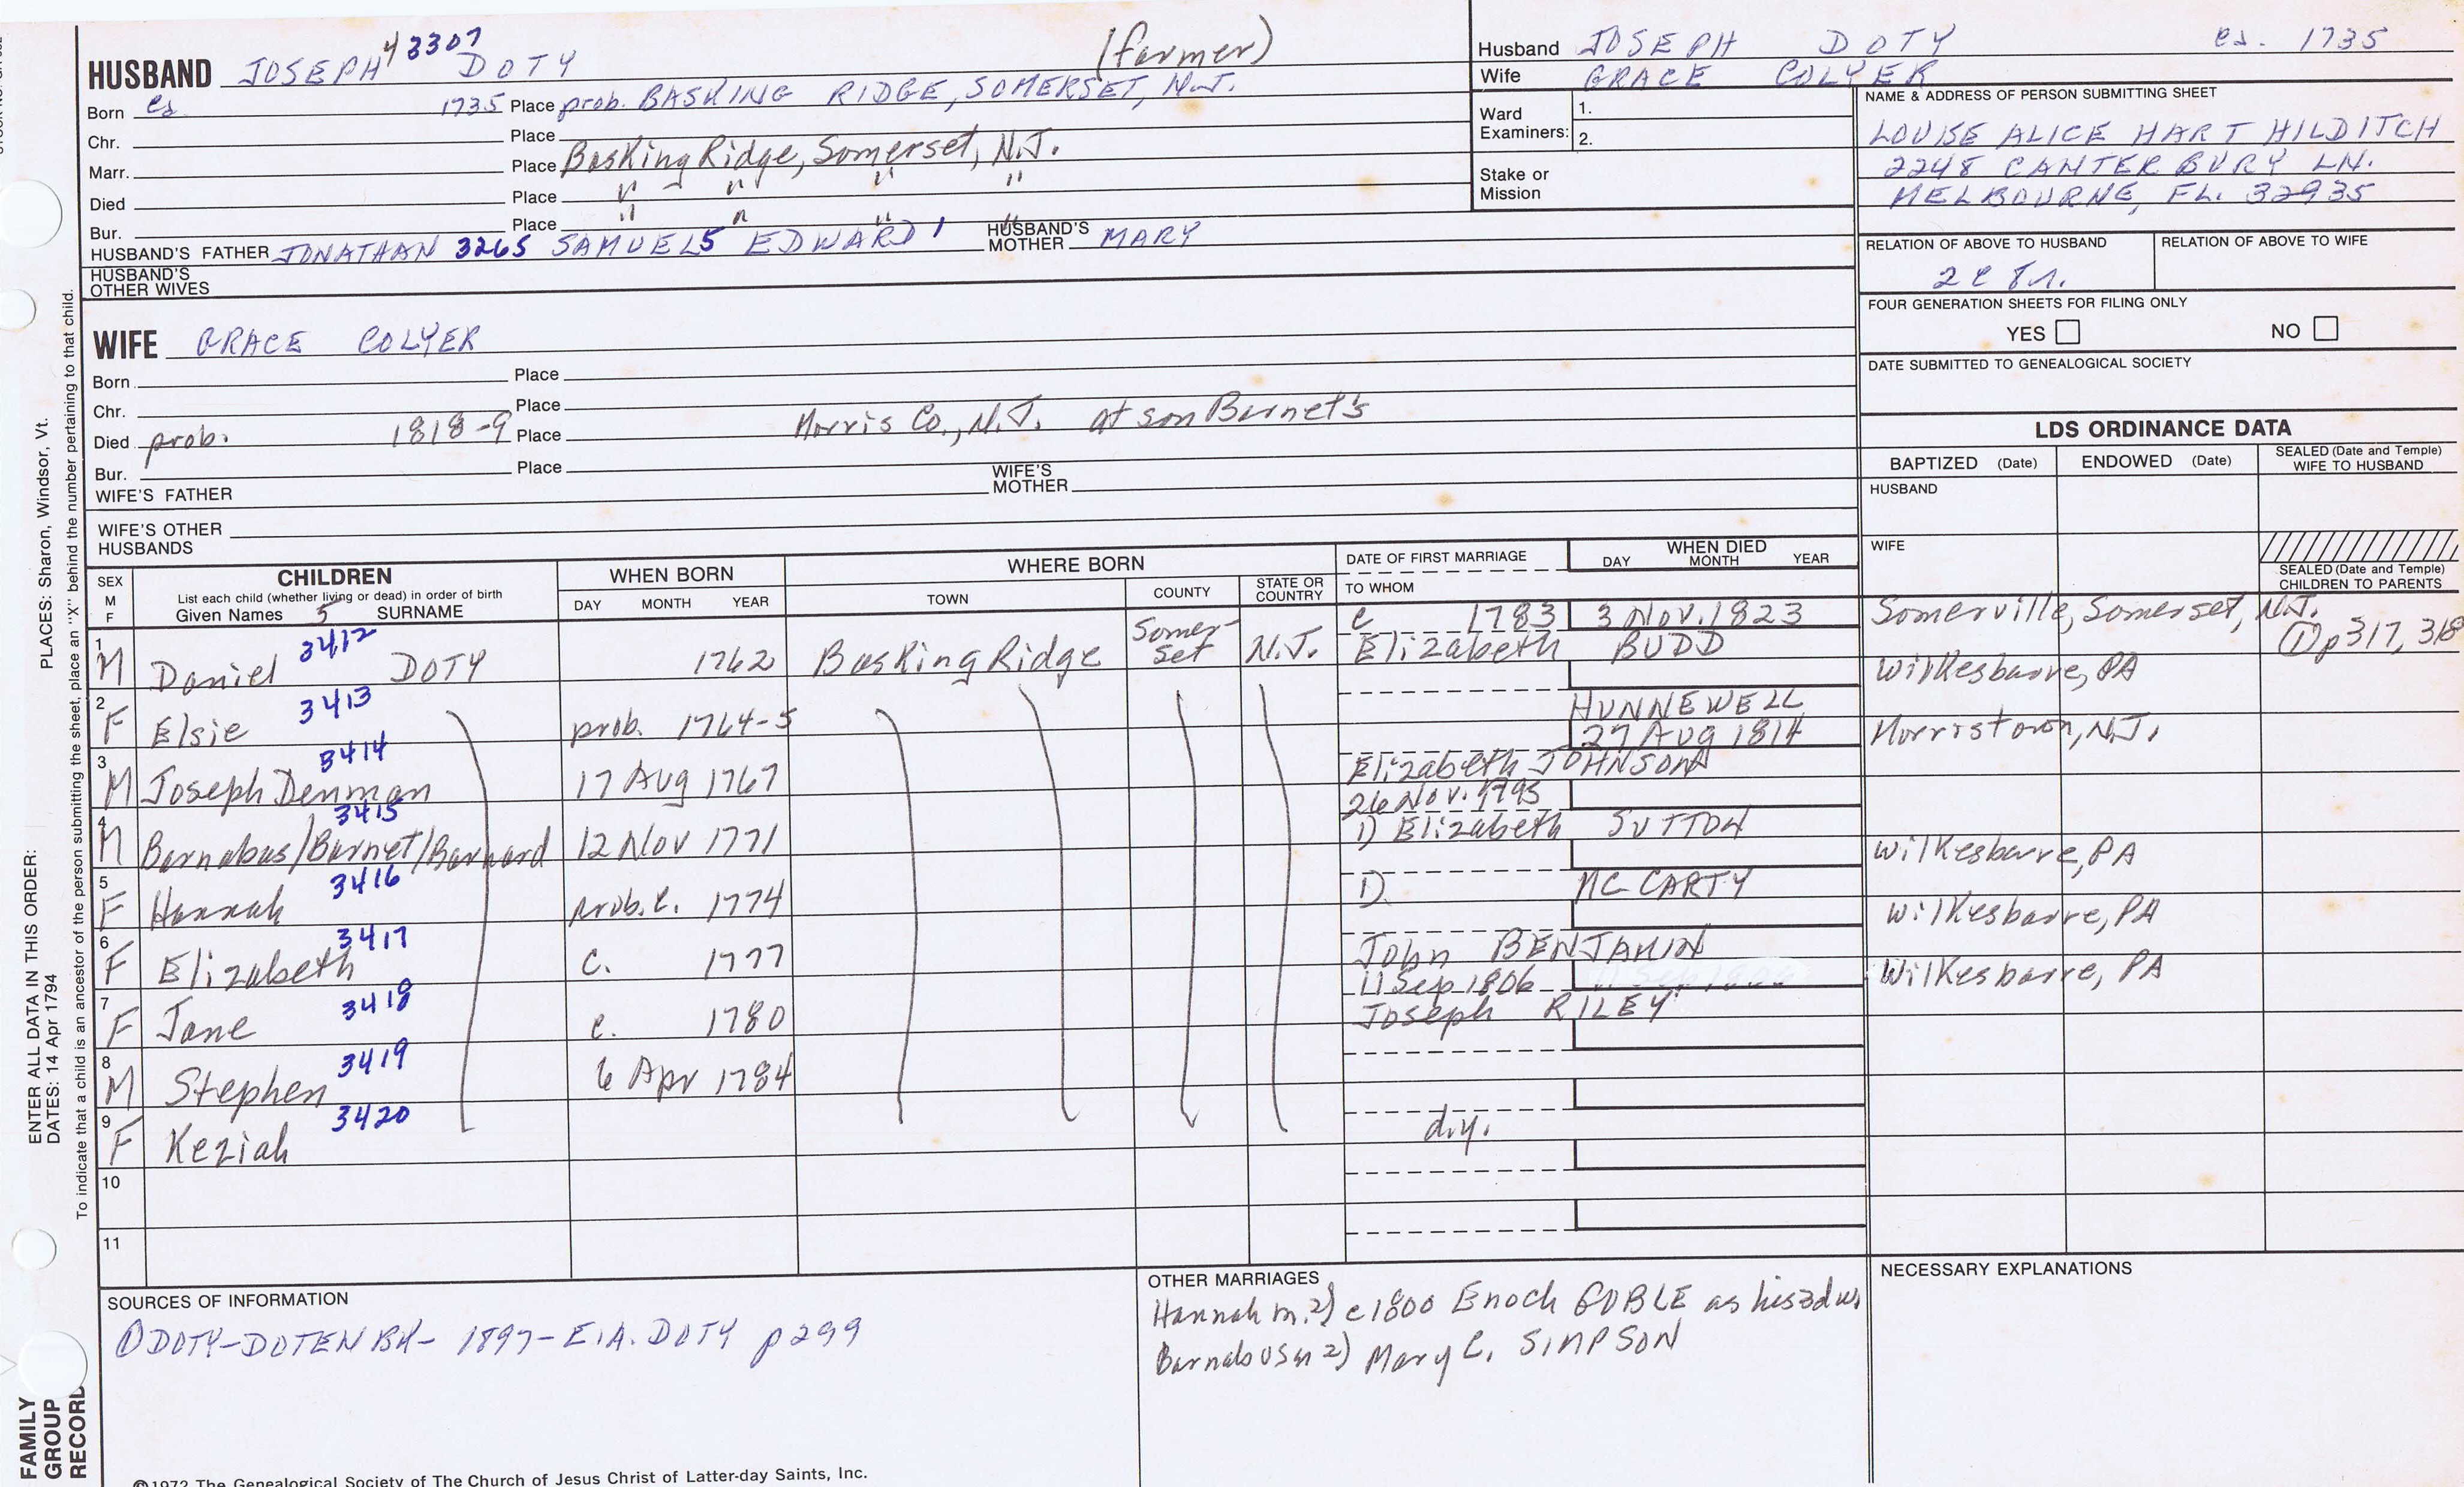 HUSBAND JOSEPH 4 3307 DOTY (farmer)
Born ca 1735 Place prob. BASKING RIDGE, SOMERSET, N.J.
Chr. Place
Marr. Place Basking Ridge, Somerset, N.J.
Died Place " " " "
Bur. Place " " " "
HUSBAND'S FATHER JONATHAN 3265 SAMUEL 5 EDWARD 1 HUSBAND'S MOTHER MARY
HUSBAND'S OTHER WIVES
WIFE GRACE COLYER
Born Place
Chr. Place
Died prob. 1818-9 Place Morris Co., N.J. at son Barnet's
Bur. Place
WIFE'S FATHER WIFE'S MOTHER
WIFE'S OTHER HUSBANDS
Husband JOSEPH DOTY ca. 1735
Wife GRACE COLYER
Ward Examiners: 1.
2.
Stake or Mission
NAME & ADDRESS OF PERSON SUBMITTING SHEET
LOUISE ALICE HART HILDITCH
2248 CANTERBURY LN.
MELBOURNE, FL. 32935
RELATION OF ABOVE TO HUSBAND RELATION OF ABOVE TO WIFE
2c 8r.
FOUR GENERATION SHEETS FOR FILING ONLY
YES NO
DATE SUBMITTED TO GENEALOGICAL SOCIETY
LDS ORDINANCE DATA
BAPTIZED (Date) ENDOWED (Date) SEALED (Date and Temple) WIFE TO HUSBAND
HUSBAND
WIFE
SEALED (Date and Temple) CHILDREN TO PARENTS
SEX M F
CHILDREN
List each child (whether living or dead) in order of birth
Given Names 5 SURNAME
WHEN BORN
DAY MONTH YEAR
WHERE BORN
TOWN COUNTY STATE OR COUNTRY
DATE OF FIRST MARRIAGE
TO WHOM
WHEN DIED
DAY MONTH YEAR
1 M Daniel 3412 DOTY 1762 Basking Ridge Somer-set N.J. c 1783 Elizabeth BUDD 3 Nov. 1823 Somerville, Somerset, N.J. ① p 317, 318
2 F Elsie 3413 prob. 1764-5 HUNNEWELL Wilkesbarre, PA
3 M Joseph Denman 3414 17 Aug 1767 Elizabeth JOHNSON 27 Aug 1814 Morristown, N.J.
4 M Barnabas/Barnet/Barnard 3415 12 Nov 1771 26 Nov. 1795 1) Elizabeth SUTTON
5 F Hannah 3416 prob. c. 1774 1) MC CARTY Wilkesbarre, PA
6 F Elizabeth 3417 c. 1777 John BENJAMIN Wilkesbarre, PA
7 F Jane 3418 c. 1780 11 Sep 1806 Joseph RILEY Wilkesbarre, PA
8 M Stephen 3419 6 Apr 1784
9 F Keziah 3420 d.y.
10
11
SOURCES OF INFORMATION
① DOTY-DOTEN BK- 1897- E.A. DOTY p 299
OTHER MARRIAGES
Hannah m. 2) c 1800 Enoch GOBLE as his 3d w.
Barnabus m 2) Mary C. SIMPSON
NECESSARY EXPLANATIONS
©1972 The Genealogical Society of The Church of Jesus Christ of Latter-day Saints, Inc.
PLACES: Sharon, Windsor, Vt.
ENTER ALL DATA IN THIS ORDER:
DATES: 14 Apr 1794
To indicate that a child is an ancestor of the person submitting the sheet, place an "X" behind the number pertaining to that child.
FAMILY GROUP RECORD